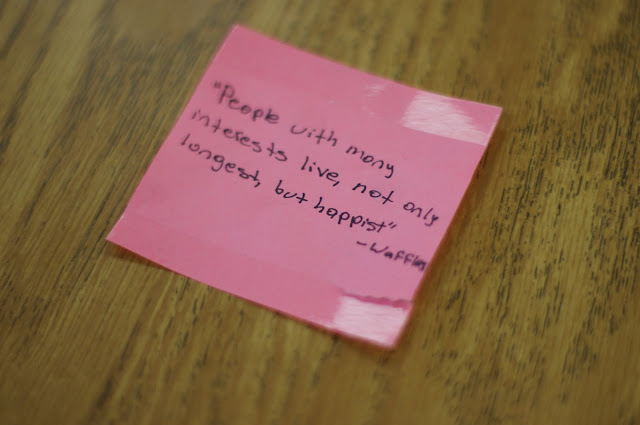 "People with many
interests live, not only
longest, but happist"
-Waffles